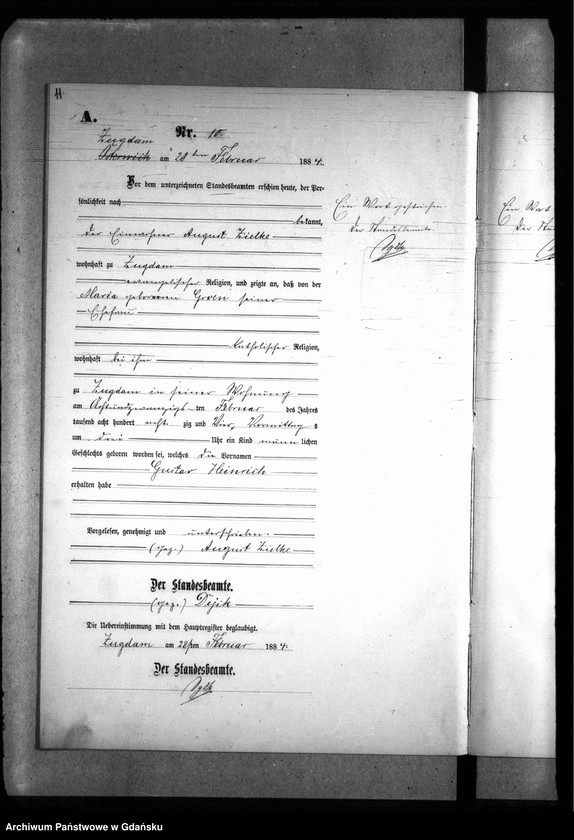 11
A.
Nr. 10.
Zugdam
Osterwick am 28 ten Februar 1884.
Vor dem unterzeichneten Standesbeamten erschien heute, der Per-
sönlichkeit nach
bekannt,
der Einwohner August Zielke
wohnhaft zu Zugdam
evangelischer Religion, und zeigte an, daß von der
Maria geborenen Groen seiner
Ehefrau
katholischer Religion,
wohnhaft bei ihm
zu Zugdam in seiner Wohnung
am Achtundzwanzigs-ten Februar des Jahres
tausend acht hundert acht zig und Vier, Vormittag s
um drei Uhr ein Kind männ lichen
Geschlechts geboren worden sei, welches die Vornamen
Gustav Heinrich
erhalten habe
Vorgelesen, genehmigt und unterschrieben.
(gez.) August Zielke
Der Standesbeamte.
(gez.)
Die Uebereinstimmung mit dem Hauptregister beglaubigt.
Zugdam am 28ten Februar 1884.
Der Standesbeamte.
Ein Wort gestrichen
Der Standesbeamte
Ein Wort
Der Sta
Archiwum Państwowe w Gdańsku